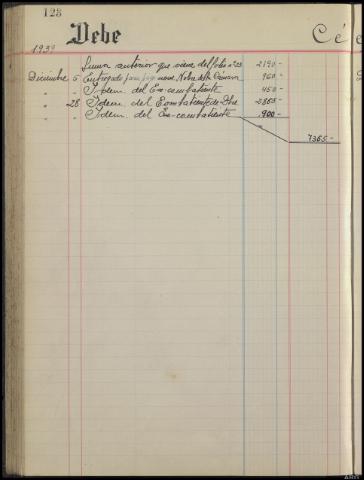 123
Debe
Cé
1939
Suma anterior que viene del folio nº 23 -2190-
Diciembre 5 Entregado para pago nom. Nobre 960-
" - Idem. del Ex-combatiente 450-
" 28 Idem del Combatiente de Dbre -2865-
- - Idem. del Ex-combatiente 900-
7365-